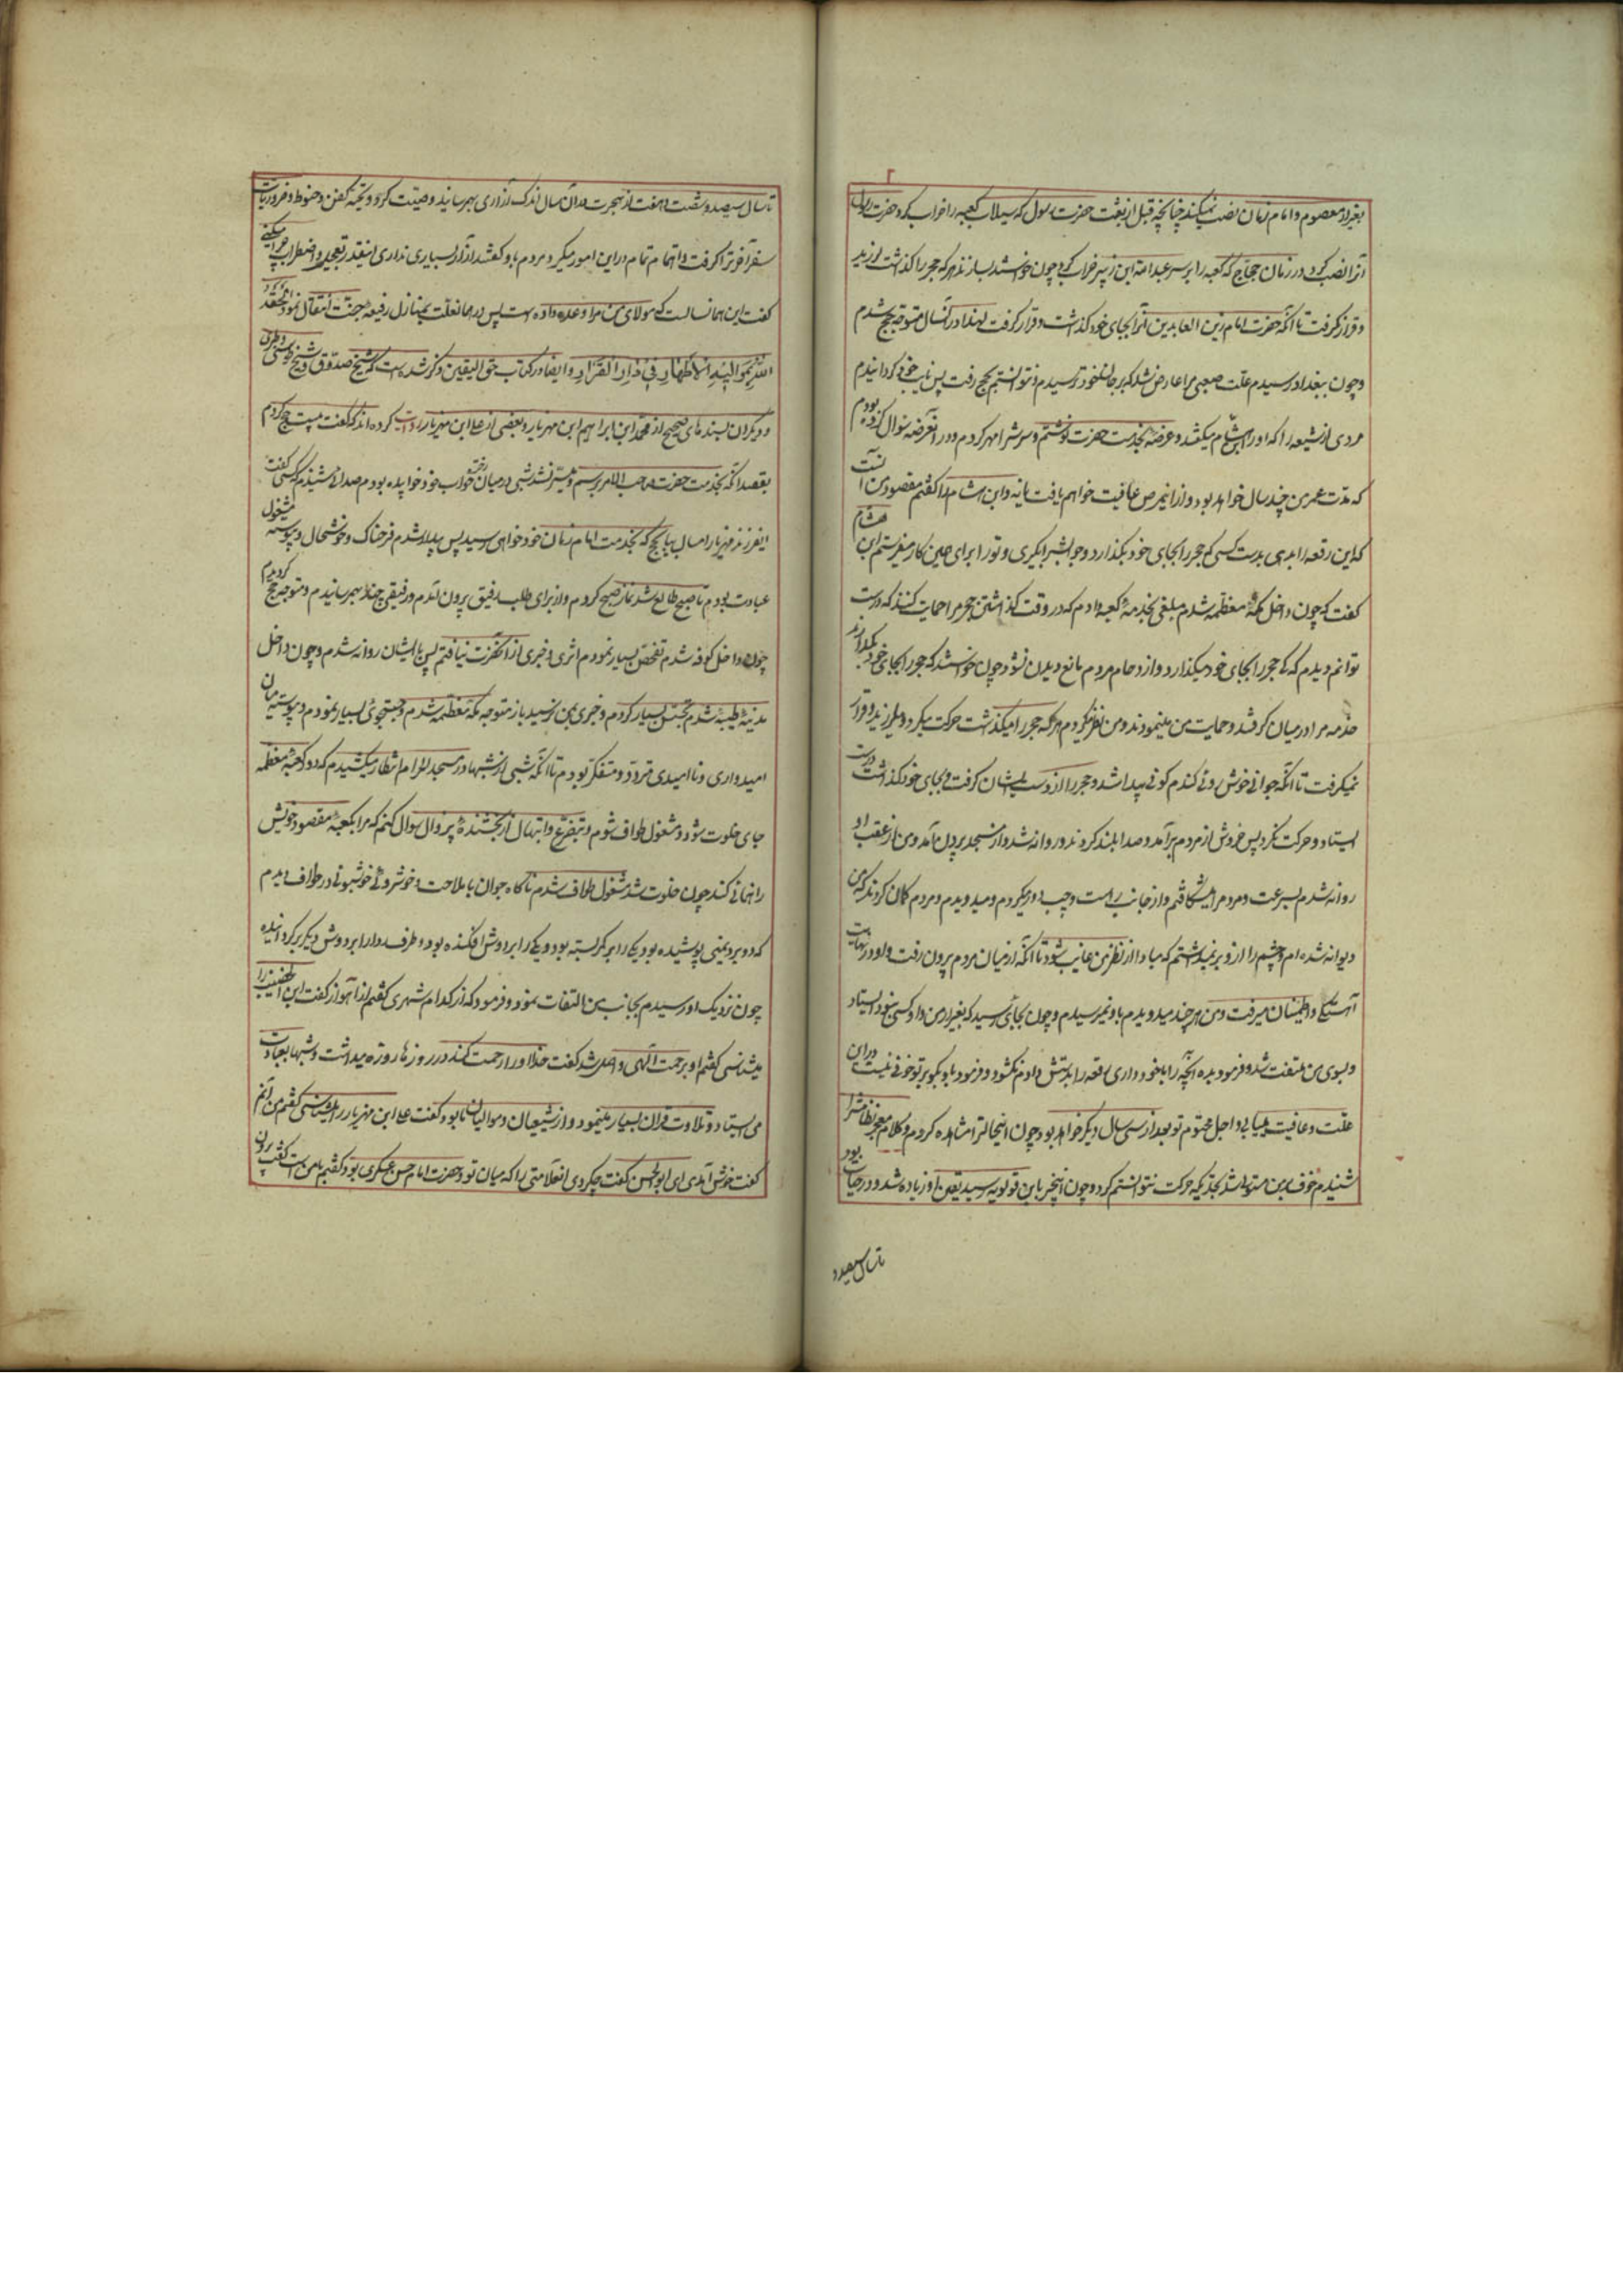 بغیر از معصوم و امام زمان نصب نمیکند چنانچه قبل از بعثت حضرت رسول که سیلاب کعبه را خراب کرد حضرت رسول
آنرا نصب کرد و در زمان حجاج که کعبه را بر سر عبد الله ابن زبیر خراب کرد چون خواستند بسازند هر که حجر را گذاشت لرزید
و قرار نگرفت تا آنکه حضرت امام زین العابدین آنرا بجای خود گذاشت و قرار گرفت لهذا در آنسال متوجه حج شدم
و چون ببغداد رسیدم علت صعبی مرا عارض شد که بر جان خود ترسیدم و نتوانستم بحج رفت پس نایب خود گردانیدم
مردی از شیعه را که او را ابن هشام میگفتند و عرضه بخدمت حضرت نوشتم و سرش را مهر کردم و در آن عرضه سوال کرده بودم
که مدت عمر من چند سال خواهد بود و از این مرض عافیت خواهم یافت یا نه و ابن هشام را گفتم مقصود من آنست
که این رقعه را بدهی بدست کسی که حجر را بجای خود بگذارد و جوابش را بگیری و تو را برای همین کار میفرستم ابن هشام
گفت که چون داخل مکه معظمه شدم مبلغی بخدمه کعبه دادم که در وقت گذاشتن حجر مرا حمایت کنند که درست
توانم دید که حجر را بجای خود میگذارد و ازدحام مردم مانع دیدن نشود چون خواستند که حجر را بجای خود بگذارند
خدمه مرا در میان گرفتند و حمایت من مینمودند و من نظر میکردم هر که حجر را میگذاشت حرکت میکرد و میلرزید و قرار
نمیگرفت تا آنکه جوانی خوش روئی گندم گونی پیدا شد و حجر را از دست ایشان گرفت و بجای خود گذاشت درست
ایستاد و حرکت نکرد پس خروش از مردم برآمد و صدا بلند کردند و روانه شد و از مسجد بیرون آمد و من از عقب او
روانه شدم بسرعت و مردم را میشکافتم و از جانب راست و چپ دور میکردم و میدویدم و مردم گمان کردند که من
دیوانه شده ام و چشم را از او بر نمیداشتم که مبادا از نظر من غایب شود تا آنکه از میان مردم بیرون رفت و او در نهایت
آهستگی و اطمینان میرفت و من هر چند میدویدم باو نمیرسیدم و چون بجائی رسید که بغیر از من و او کسی نبود ایستاد
و بسوی من ملتفت شد و فرمود بده آنچه را با خود داری رقعه را بدستش دادم نگشود و فرمود باو بگو بر تو خوفی نیست در این
علت و عافیت مییابی و اجل محتوم تو بعد از سی سال دیگر خواهد بود چون اینحالت را مشاهده کردم و کلام معجز نظامش را
شنیدم خوف بر من مستولی شد بحدیکه حرکت نتوانستم کرد و چون اینخبر باین قولویه رسید یقین او زیاده شد و در حیات بود
تا سال سیصد و
تا سال سیصد و شصت و هفت از هجرت در آن سال اندک آزاری بهم رسانید وصیت کرد و تهیه کفن و حنوط و ضروریات
سفر آخرت را گرفت و اهتمام تمام در این امور میکرد مردم باو گفتند آزار بسیاری نداری اینقدر تعجیل و اضطراب چرا میکنی
گفت این همانسال است که مولای من مرا وعده داده است پس در همان علت بمنازل رفیعه جنت انتقال نمود
اللّٰهُ بِمَوَالِیهِ الْاَطْهَارِ فِی دَارِ الْقَرَارِ و ایضا در کتاب حق الیقین ذکر شده است که شیخ صدوق و شیخ طوسی و طبرسی
و دیگران بسندهای صحیح از محمد ابن ابراهیم ابن مهزیار و بعضی از علی ابن مهزیار روایت کرده اند که گفت بیست حج کردم
بقصد آنکه بخدمت حضرت صاحب الامر برسم و میسر نشد شبی در میان رختخواب خود خوابیده بودم صدائی شنیدم که کسی گفت
ای فرزند مهزیار امسال بیا بحج که بخدمت امام زمان خود خواهی رسید پس بیدار شدم فرحناک و خوشحال و پیوسته مشغول
عبادت بودم تا صبح طالع شد نماز صبح کردم و از برای طلب رفیق بیرون آمدم و رفیقی چند بهم رسانیدم و متوجه حج گردیدم
چون داخل کوفه شدم تفحص بسیار نمودم اثری و خبری از آنحضرت نیافتم پس با ایشان روانه شدم و چون داخل
مدینه طیبه شدم تجسس بسیار کردم و خبری بمن نرسید باز متوجه مکه معظمه شدم و جستجوئی بسیار نمودم و پیوسته میان
امیدواری و نا امیدی متردد و متفکر بودم تا آنکه شبی از شبها در مسجد الحرام انتظار میکشیدم که دور کعبه معظمه
جای خلوت شود و مشغول طواف شوم و بتضرع و ابتهال از بخشنده بیزوال سوال کنم که مرا بکعبه مقصود خویش
راهنمائی کند چون خلوت شد مشغول طواف شدم ناگاه جوان با ملاحت و خوشروئی خوشبوئی در طواف دیدم
که دو برد یمنی پوشیده بود یکی را بر کمر بسته بود و یکی را بر دوش افکنده بود و طرف ردا را بر دوش دیگر برگردانیده
چون نزدیک او رسیدم بجانب من التفات نمود و فرمود که از کدام شهری گفتم از اهواز گفت ابن الخضیب را
میشناسی گفتم او برحمت الهی واصل شد گفت خدا او را رحمت کند در روزها روزه میداشت و شبها بعبادت
می ایستاد و تلاوت قران بسیار مینمود و از شیعیان و موالیان ما بود گفت علی ابن مهزیار را میشناسی گفتم من آنم
گفت خوش آمدی ای ابو الحسن گفت چکردی آنعلامتی را که میان تو و حضرت امام حسن عسکری بود گفتم با من است گفت بیرون